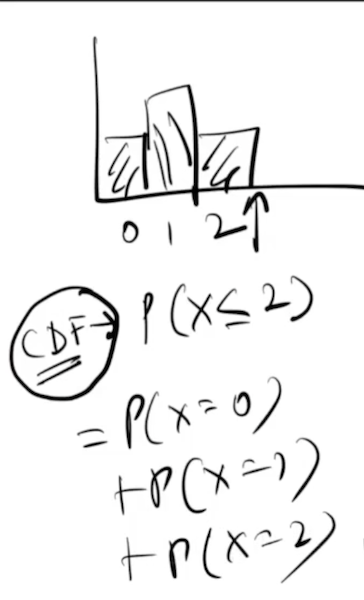 0 1 2
CDF → P(X ≤ 2)
= P(X = 0)
+ P(X = 1)
+ P(X = 2)